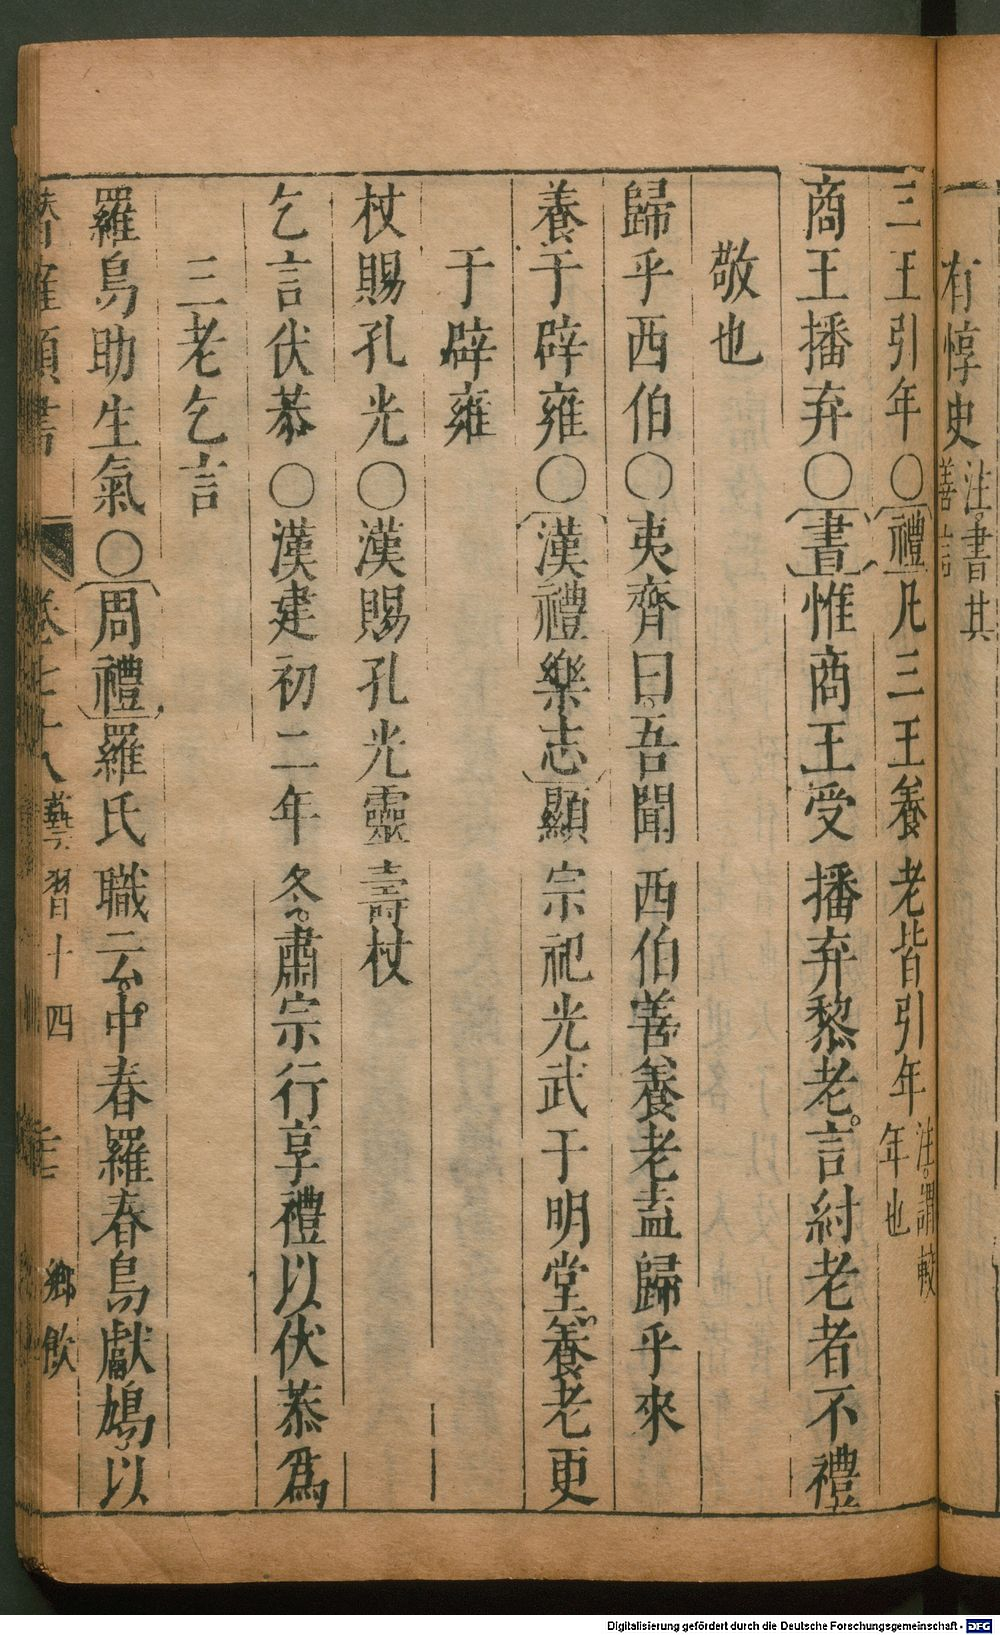 有惇史注。書其
善言
三王引年○禮凡三王養老皆引年注。謂較
年也
商王播弃○書惟商王受播弃黎老。言紂老者不禮
敬也
歸乎西伯○夷齊曰。吾聞西伯善養老盍歸乎來
養于辟雍○漢禮樂志顯宗祀光武于明堂。養老更
于辟雍
杖賜孔光○漢賜孔光靈壽杖
乞言伏恭○漢建初二年冬。肅宗行享禮以伏恭爲
三老乞言
羅鳥助生氣○周禮羅氏職云。中春羅春鳥獻鳩。以
卷七十八 藝習十四 鄉飲
Digitalisierung gefördert durch die Deutsche Forschungsgemeinschaft - DFG